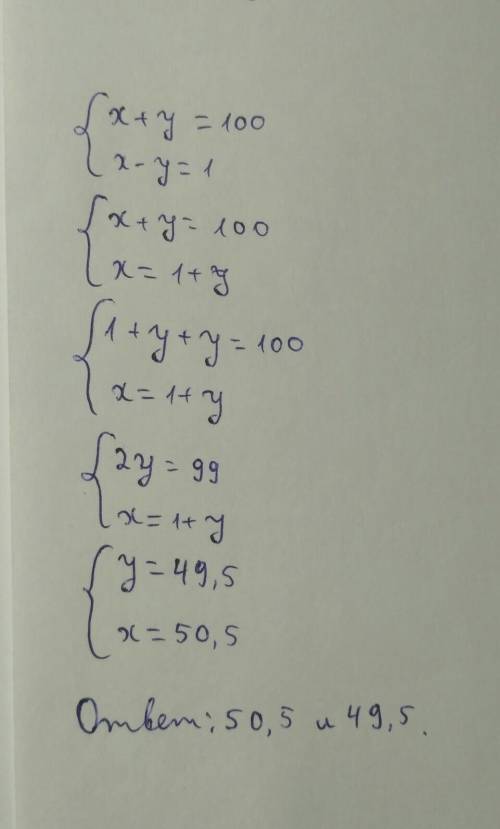 x + y = 100
x - y = 1
x + y = 100
x = 1 + y
1 + y + y = 100
x = 1 + y
2y = 99
x = 1 + y
y = 49,5
x = 50,5
Ответ: 50,5 и 49,5.